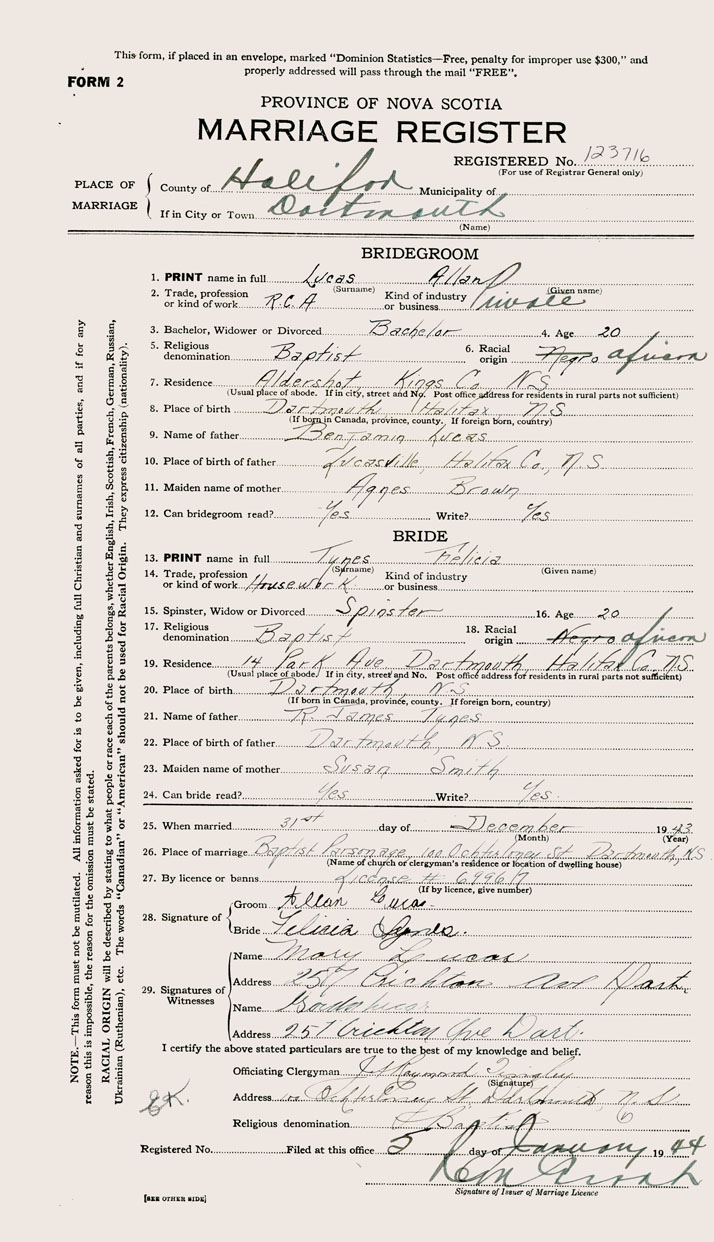 This form, if placed in an envelope, marked "Dominion Statistics—Free, penalty for improper use $300," and
properly addressed will pass through the mail "FREE".
FORM 2
PROVINCE OF NOVA SCOTIA
MARRIAGE REGISTER
REGISTERED No. 123716
(For use of Registrar General only)
PLACE OF MARRIAGE
County of Halifax Municipality of
If in City or Town Dartmouth
(Name)
BRIDEGROOM
1. PRINT name in full Lucas Allan
(Surname) (Given name)
2. Trade, profession or kind of work R.C.A Kind of industry or business Private
3. Bachelor, Widower or Divorced Bachelor 4. Age 20
5. Religious denomination Baptist 6. Racial origin Negro African
7. Residence Aldershot Kings Co N.S.
(Usual place of abode. If in city, street and No. Post office address for residents in rural parts not sufficient)
8. Place of birth Dartmouth Halifax N.S
(If born in Canada, province, county. If foreign born, country)
9. Name of father Benjamin Lucas
10. Place of birth of father Lucasville, Halifax Co., N.S.
11. Maiden name of mother Agnes Brown
12. Can bridegroom read? Yes Write? Yes
BRIDE
13. PRINT name in full Tynes Felicia
(Surname) (Given name)
14. Trade, profession or kind of work Housework Kind of industry or business
15. Spinster, Widow or Divorced Spinster 16. Age 20
17. Religious denomination Baptist 18. Racial origin Negro African
19. Residence 14 Park Ave Dartmouth Halifax Co. N.S.
(Usual place of abode. If in city, street and No. Post office address for residents in rural parts not sufficient)
20. Place of birth Dartmouth, N.S
(If born in Canada, province, county. If foreign born, country)
21. Name of father R. James Tynes
22. Place of birth of father Dartmouth, N.S.
23. Maiden name of mother Susan Smith
24. Can bride read? Yes Write? Yes.
25. When married 31st day of December 1943
(Month) (Year)
26. Place of marriage Baptist Parsonage, 100 Ochterloney St Dartmouth, N.S
(Name of church or clergyman's residence or location of dwelling house)
27. By licence or banns License #
(If by licence, give number)
28. Signature of
Groom Allan Lucas.
Bride Felicia Tynes.
29. Signatures of Witnesses
Name Mary Lucas
Address 257 Crichton Ave Dart.
Name
Address 257 Crichton Ave Dart.
I certify the above stated particulars are true to the best of my knowledge and belief.
Officiating Clergyman Raymond
(Signature)
Address 100 Ochterloney St Dartmouth, N.S.
Religious denomination Baptist
Registered No. Filed at this office 5 day of January 1944
Signature of Issuer of Marriage Licence
[SEE OTHER SIDE]
NOTE.—This form must not be mutilated. All information asked for is to be given, including full Christian and surnames of all parties, and if for any
reason this is impossible, the reason for the omission must be stated.
RACIAL ORIGIN will be described by stating to what people or race each of the parents belongs, whether English, Irish, Scottish, French, German, Russian,
Ukrainian (Ruthenian), etc. The words "Canadian" or "American" should not be used for Racial Origin. They express citizenship (nationality).